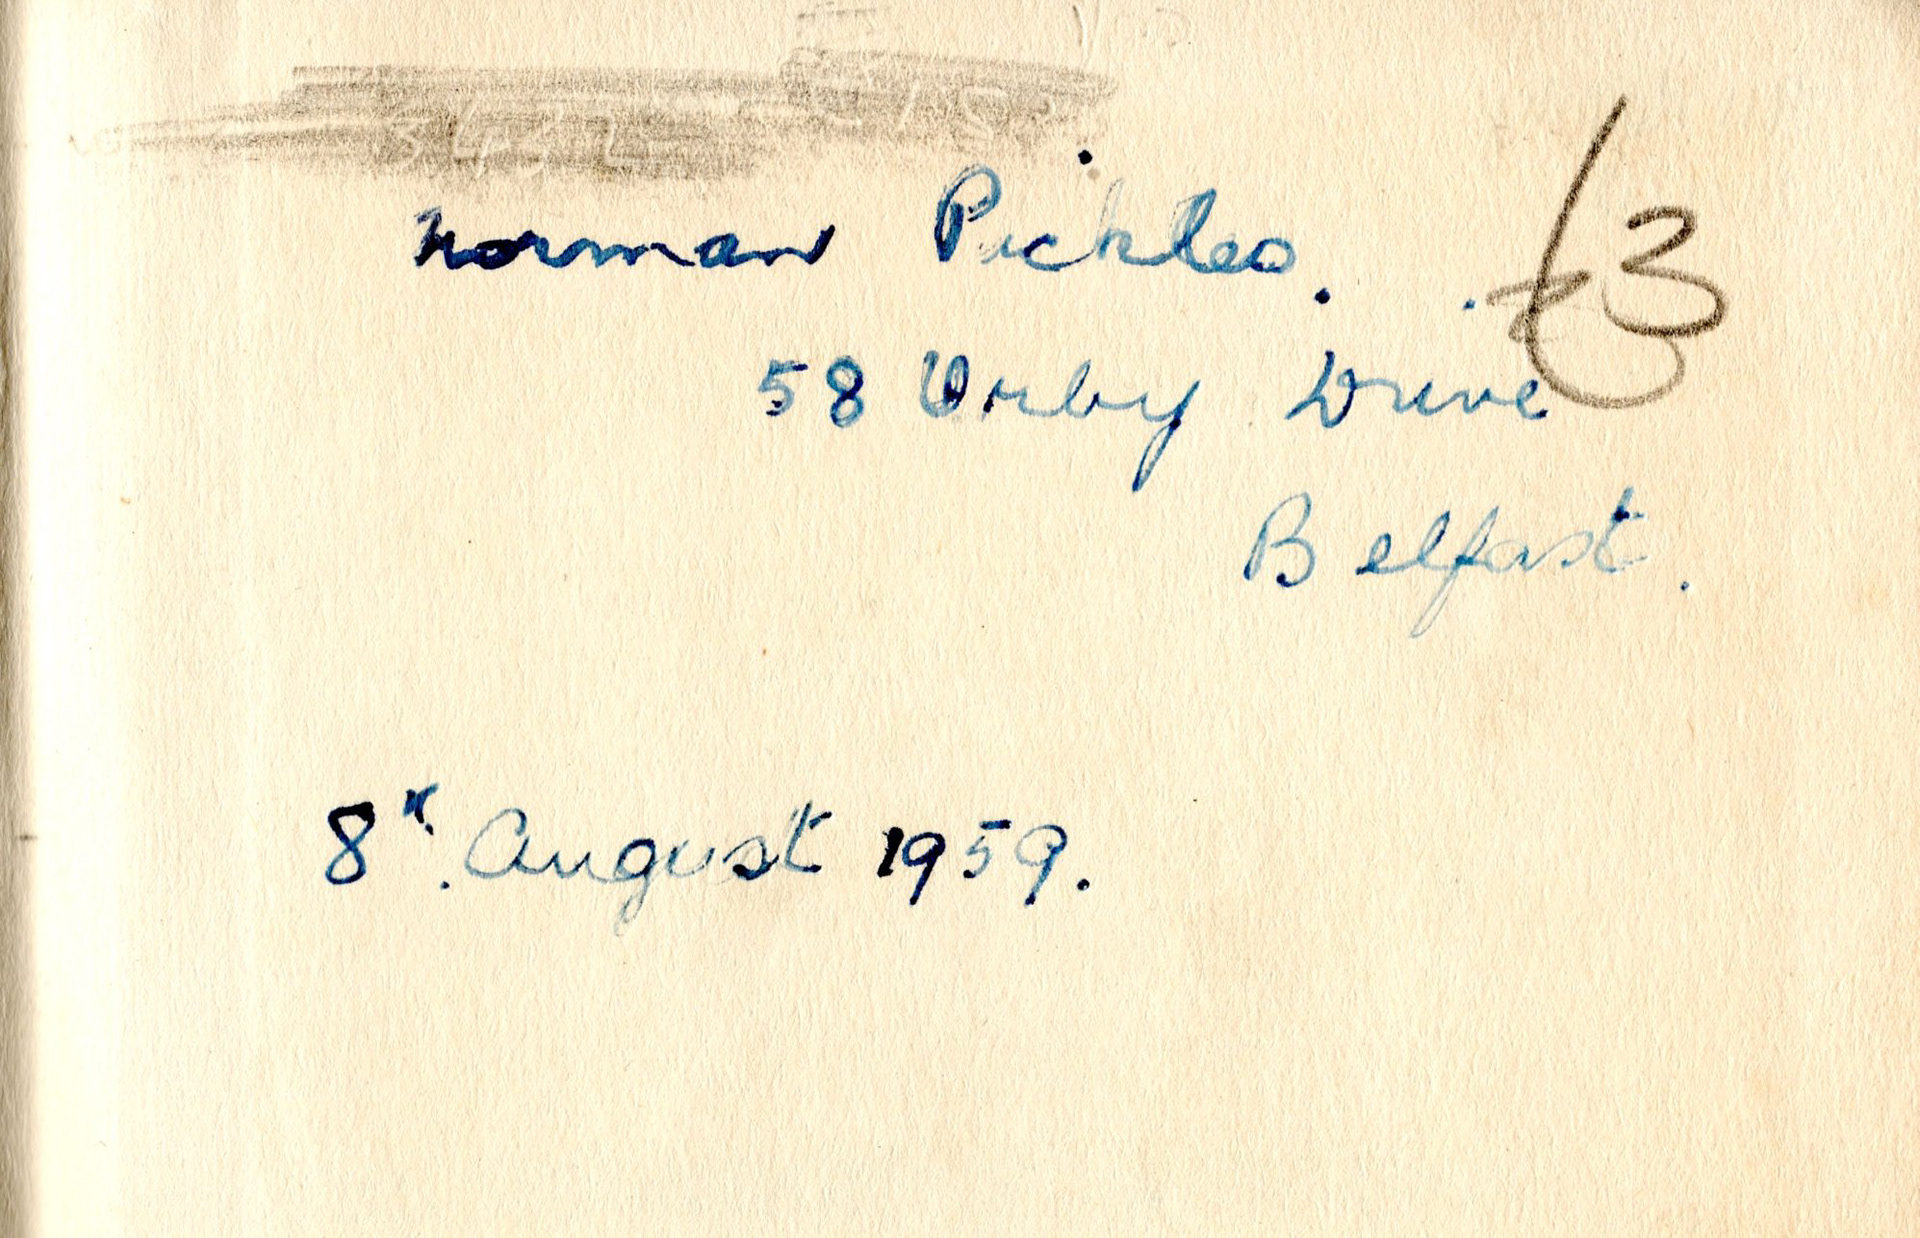 Norman Pickles.
£3
58 Orby Drive
Belfast.
8th. August 1959.